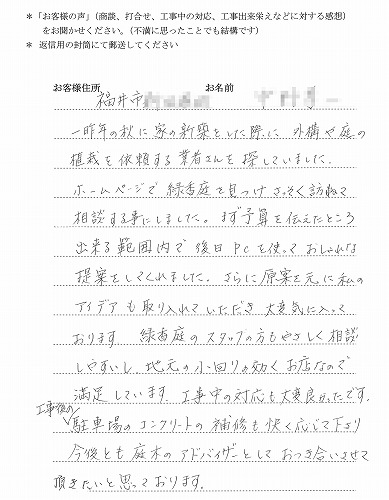 ＊「お客様の声」（商談、打合せ、工事中の対応、工事出来栄えなどに対する感想）
をお聞かせください。（不満に思ったことでも結構です）
＊ 返信用の封筒にて郵送してください
お客様住所 お名前
福井市
一昨年の秋に家の新築をした際に 外構や庭の
植栽を依頼する業者さんを探していました．
ホームページで 緑香庭を見つけ さっそく訪ねて
相談する事にしました。まず予算を伝えたところ
出来る範囲内で 後日PCを使って おしゃれな
提案をしてくれました．さらに原案を元に私の
アイデアも取り入れていただき 大変気に入って
おります 緑香庭のスタッフの方もやさしく相談
しやすいし、地元の小回りの効くお店なので
満足しています．工事中の対応も大変良かったです．
工事後の駐車場のコンクリートの補修も快く応じて下さり
今後とも 庭木のアドバイザーとして おつき合いさせて
頂きたいと思っております．